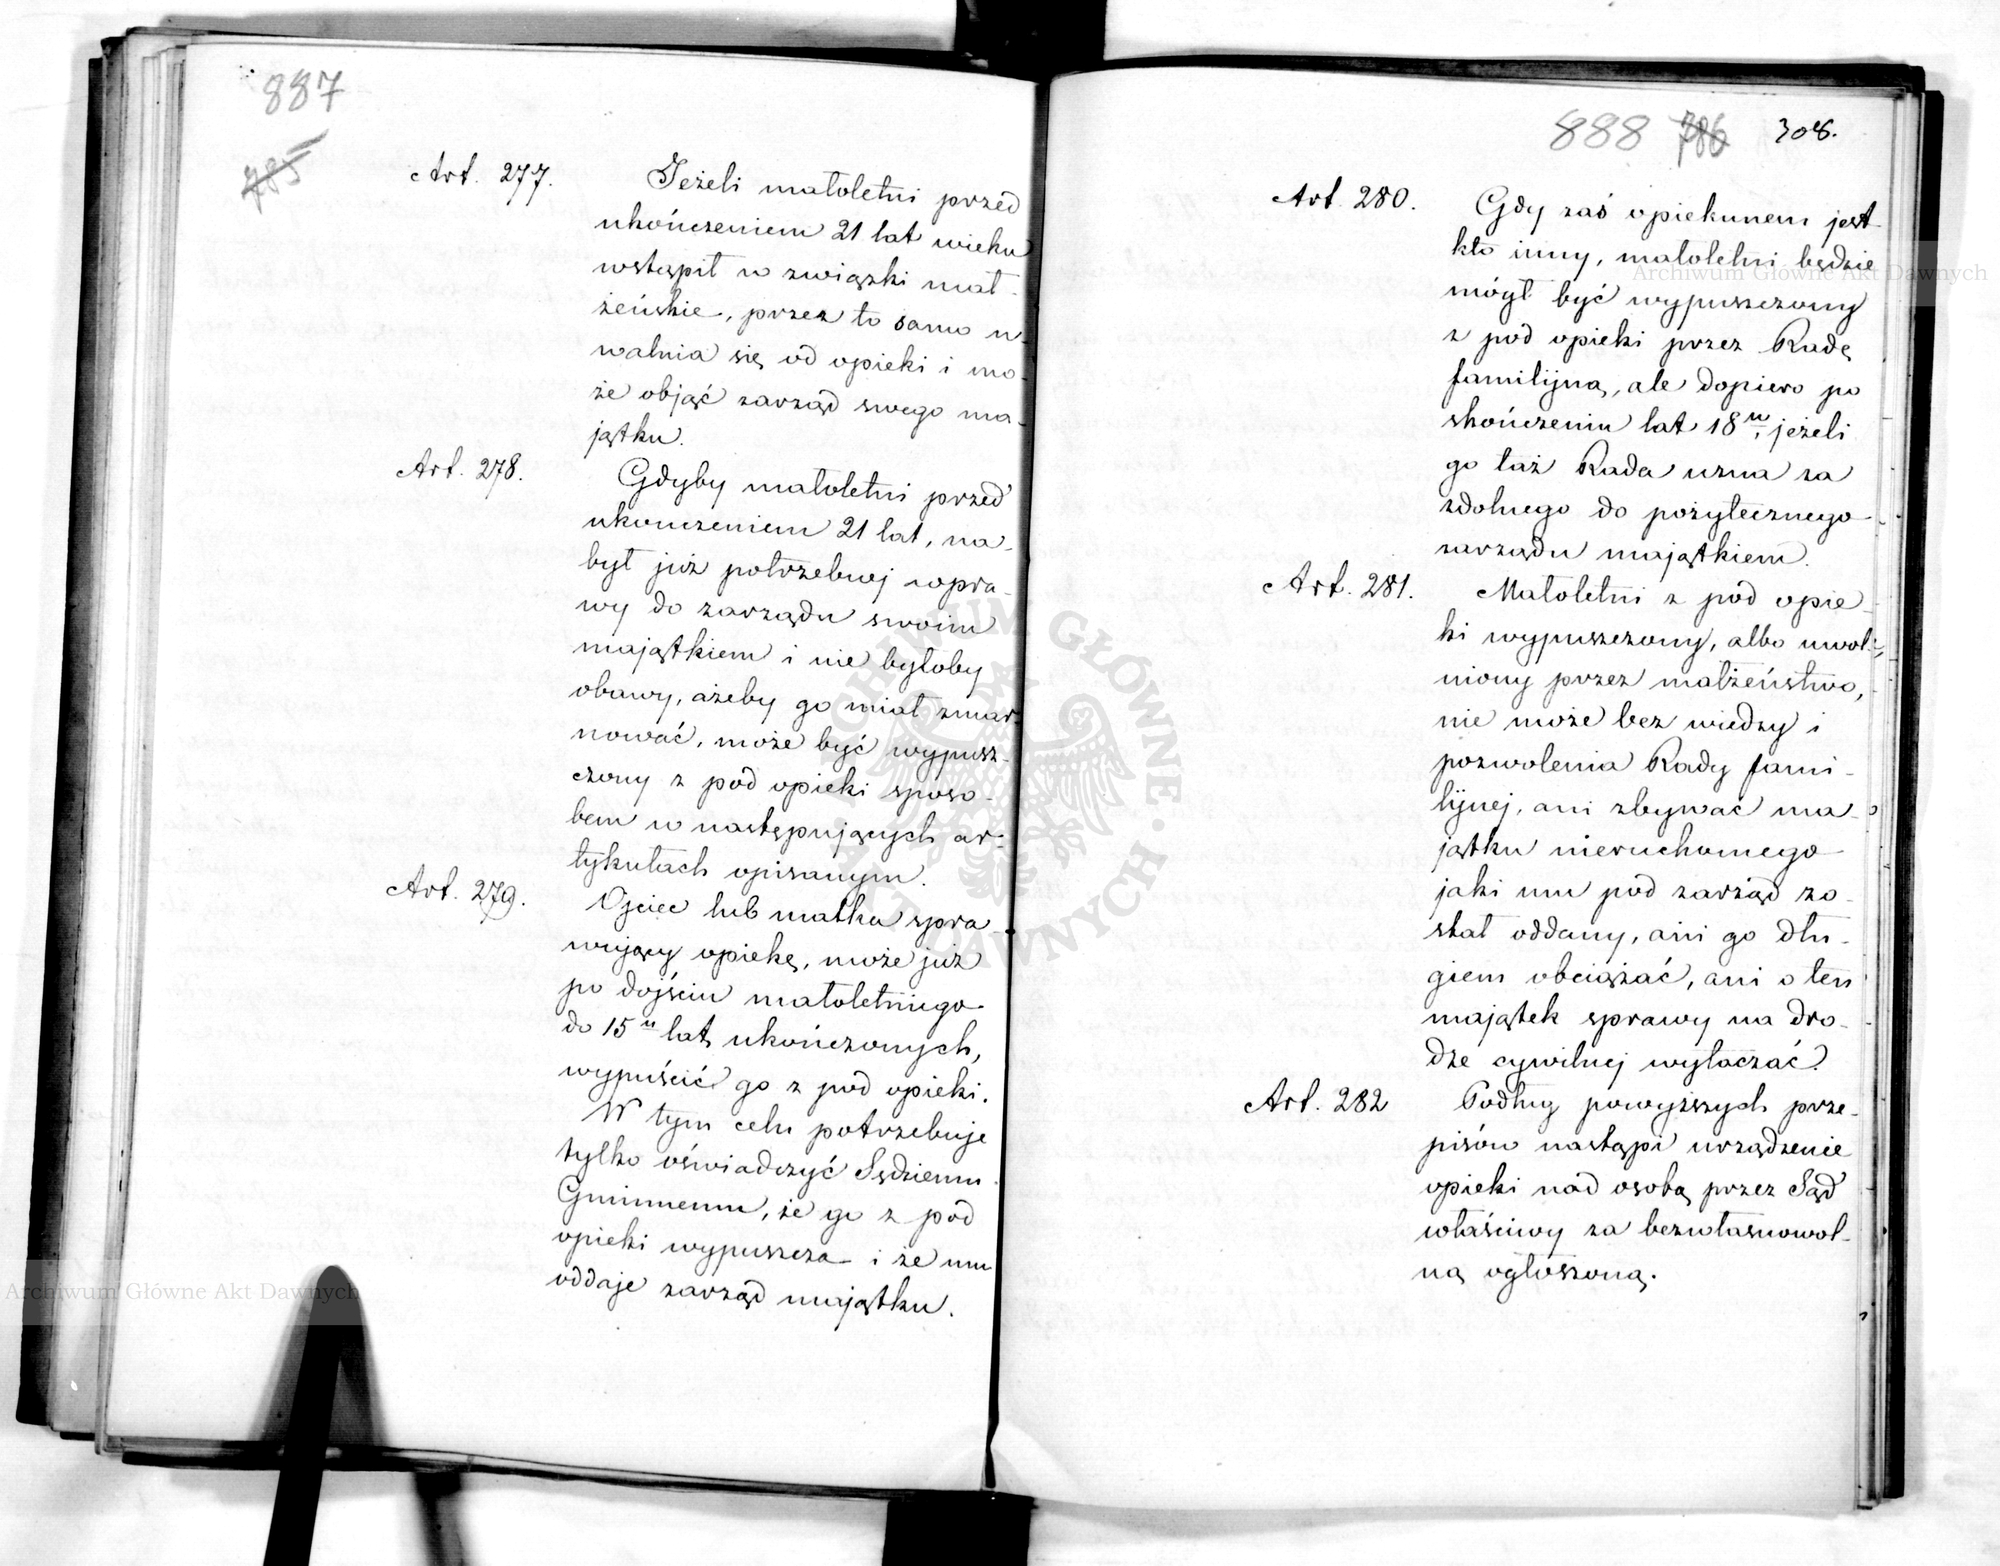 887
785
Art. 277.
Jeżeli małoletni przed
ukończeniem 21 lat wieku
wstąpił w związki mał-
żeńskie, przez to samo u-
walnia się od opieki i mo-
że objąć zarząd swego ma-
jątku.
Art. 278.
Gdyby małoletni przed
ukończeniem 21 lat, na-
był już potrzebnej wpra-
wy do zarządu swoim
majątkiem i nie byłoby
obawy, ażeby go miał zmar-
nować, może być wypusz-
czony z pod opieki sposo-
bem w następujących ar-
tykułach opisanym.
Art. 279.
Ojciec lub matka spra-
wujący opiekę, może już
po dojściu małoletniego
do 15u lat ukończonych,
wypuścić go z pod opieki.
W tym celu potrzebuje
tylko oświadczyć Sędziemu
Gminnemu, że go z pod
opieki wypuszcza i że mu
oddaje zarząd majątku.
888 786 308.
Art. 280.
Gdy zaś opiekunem jest
kto inny, małoletni będzie
mógł być wypuszczony
z pod opieki przez Radę
familijną, ale dopiero po
skończeniu lat 18tu, jeżeli
go taż Rada uzna za
zdolnego do pożytecznego
zarządu majątkiem.
Art. 281.
Małoletni z pod opie-
ki wypuszczony, albo uwol-
niony przez małżeństwo,
nie może bez wiedzy i
pozwolenia Rady fami-
lijnej, ani zbywać ma-
jątku nieruchomego
jaki mu pod zarząd zo-
stał oddany, ani go dłu-
giem obciążać, ani o ten
majątek sprawy na dro-
dze cywilnej wytaczać.
Art. 282
Podług powyższych prze-
pisów nastąpi urządzenie
opieki nad osobą przez Sąd
właściwy za bezwłasnowol-
ną ogłoszoną.
Archiwum Główne Akt Dawnych
Archiwum Główne Akt Dawnych
ARCHIWUM GŁÓWNE AKT DAWNYCH